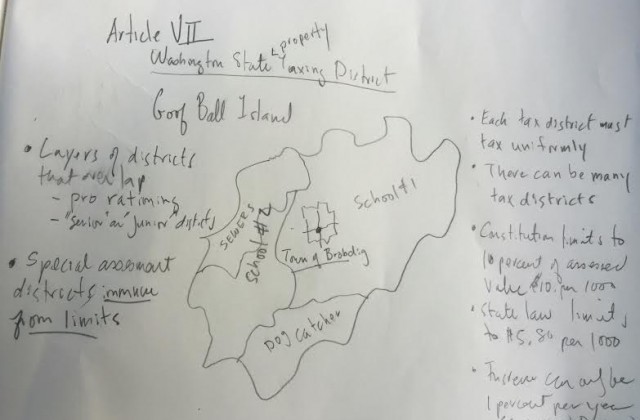 Article VII
property
Washington State Taxing District
Goof Ball Island
• Layers of districts
that overlap
- pro rationing
- "Senior" or "Junior" districts
• Special assessment
districts immune
from limits
SEWERS
School #2
School #1
Town of Brobding
Dog Catcher
• Each tax district must
tax uniformly
• There can be many
tax districts
• Constitution limits to
percent of assessed
value $10. per 1000
• State law limits
to $5. per 1000
• Increase can only be
1 percent per year